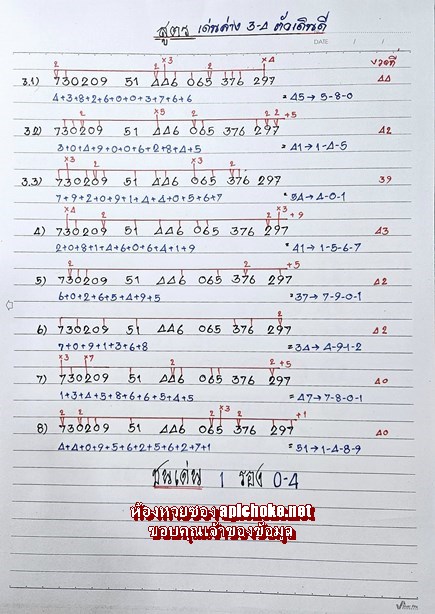 สูตร เด่นล่าง 3-4 ตัวเดินดี
DATE / /
งวดที่
x3 x4
2 2
3.1) 730209 51 446 065 376 297 44
4+3+8+2+6+0+0+3+7+6+6 = 45→ 5-8-0
x3 +5
2 2 2 2
3.2) 730209 51 446 065 376 297 42
3+0+4+9+0+0+6+2+8+4+5 = 41→ 1-4-5
x3 x3
2 2 2
3.3) 730209 51 446 065 376 297 39
7+9+2+0+9+1+4+4+0+5+6+7 = 54→ 4-0-1
x4 x3 +9
2 2
4) 730209 51 446 065 376 297 43
2+0+8+1+4+6+0+6+4+1+9 = 41→ 1-5-6-7
2 2 +5
5) 730209 51 446 065 376 297 42
6+0+2+6+5+4+9+5 = 37→ 7-9-0-1
2
6) 730209 51 446 065 376 297 42
7+0+9+1+3+6+8 = 34→ 4-9-1-2
x3 x7 +5
2 2
7) 730209 51 446 065 376 297 40
1+3+4+5+8+6+6+5+4+5 = 47→ 7-8-0-1
x3 +1
2 2 2 2
8) 730209 51 446 065 376 297 40
4+4+0+9+5+6+2+5+6+2+7+1 = 51→ 1-4-8-9
ชนเด่น 1 รอง 0-4
ห้องหวยซอง apichoke.net
ขอบคุณเจ้าของข้อมูล